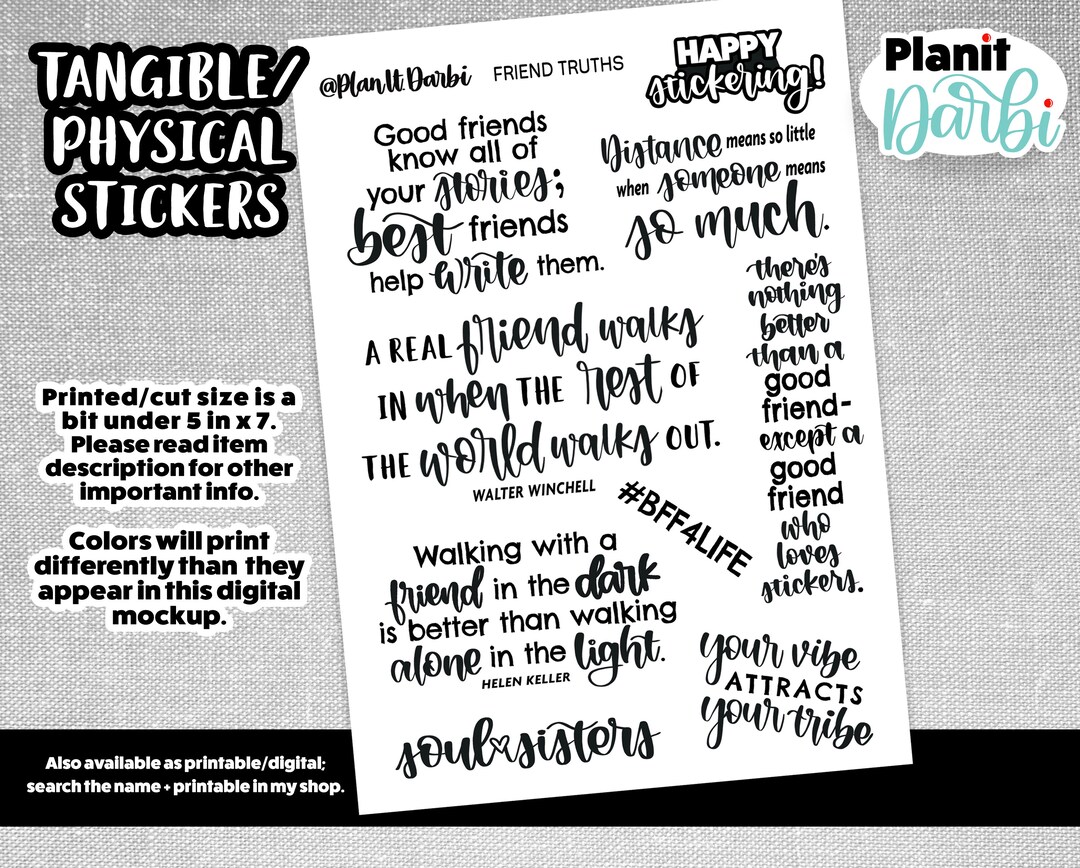 TANGIBLE/
PHYSICAL
STICKERS
Printed/cut size is a
bit under 5 in x 7.
Please read item
description for other
important info.
Colors will print
differently than they
appear in this digital
mockup.
Also available as printable/digital;
search the name + printable in my shop.
@PlanIt.Darbi
FRIEND TRUTHS
HAPPY
stickering!
Good friends
know all of
your stories;
best friends
help write them.
Distance means so little
when someone means
so much.
A REAL friend walks
IN when THE rest OF
THE world walks OUT.
WALTER WINCHELL
there's
nothing
better
than a
good
friend-
except a
good
friend
who
loves
stickers.
#BFF4LIFE
Walking with a
friend in the dark
is better than walking
alone in the light.
HELEN KELLER
your vibe
ATTRACTS
your tribe
soul sisters
Planit
Darbi